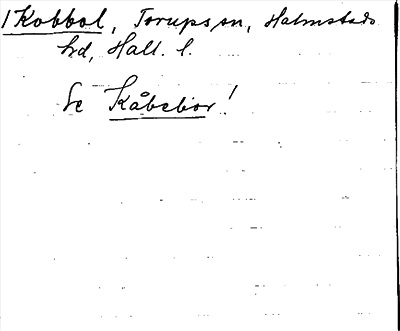 /Kobbol, Torups sn, Halmstads
hd, Hall. l.
Se Kåbebor!